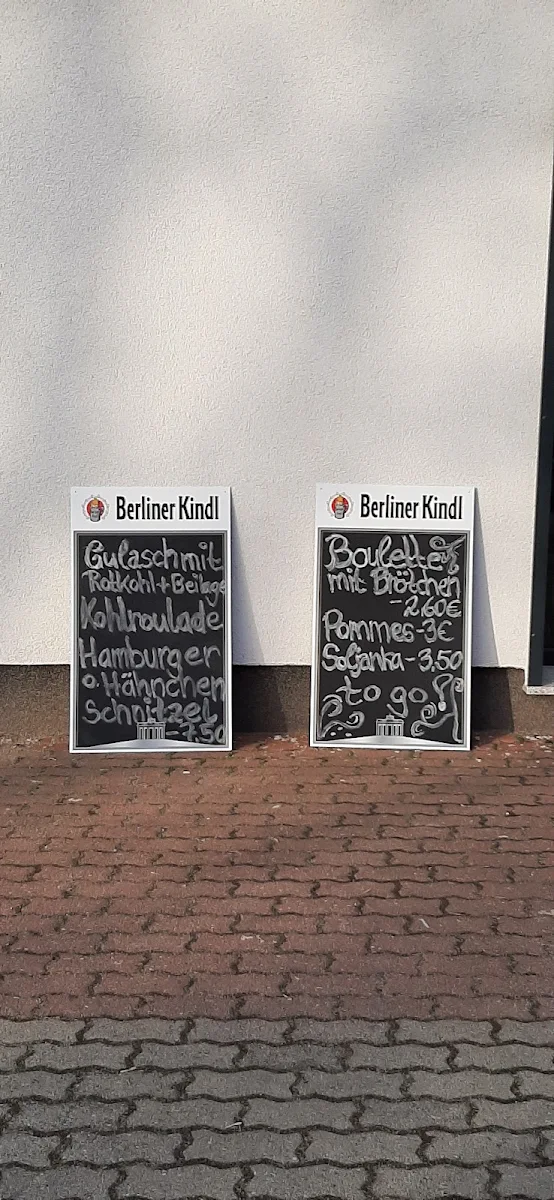 Berliner Kindl
Gulasch mit
Rotkohl + Beilage
Kohlroulade
Hamburger
o. Hähnchen
Schnitzel
- 7,50
Berliner Kindl
Boulette
mit Brötchen
- 2.60€
Pommes - 3€
Soljanka - 3.50
to go!